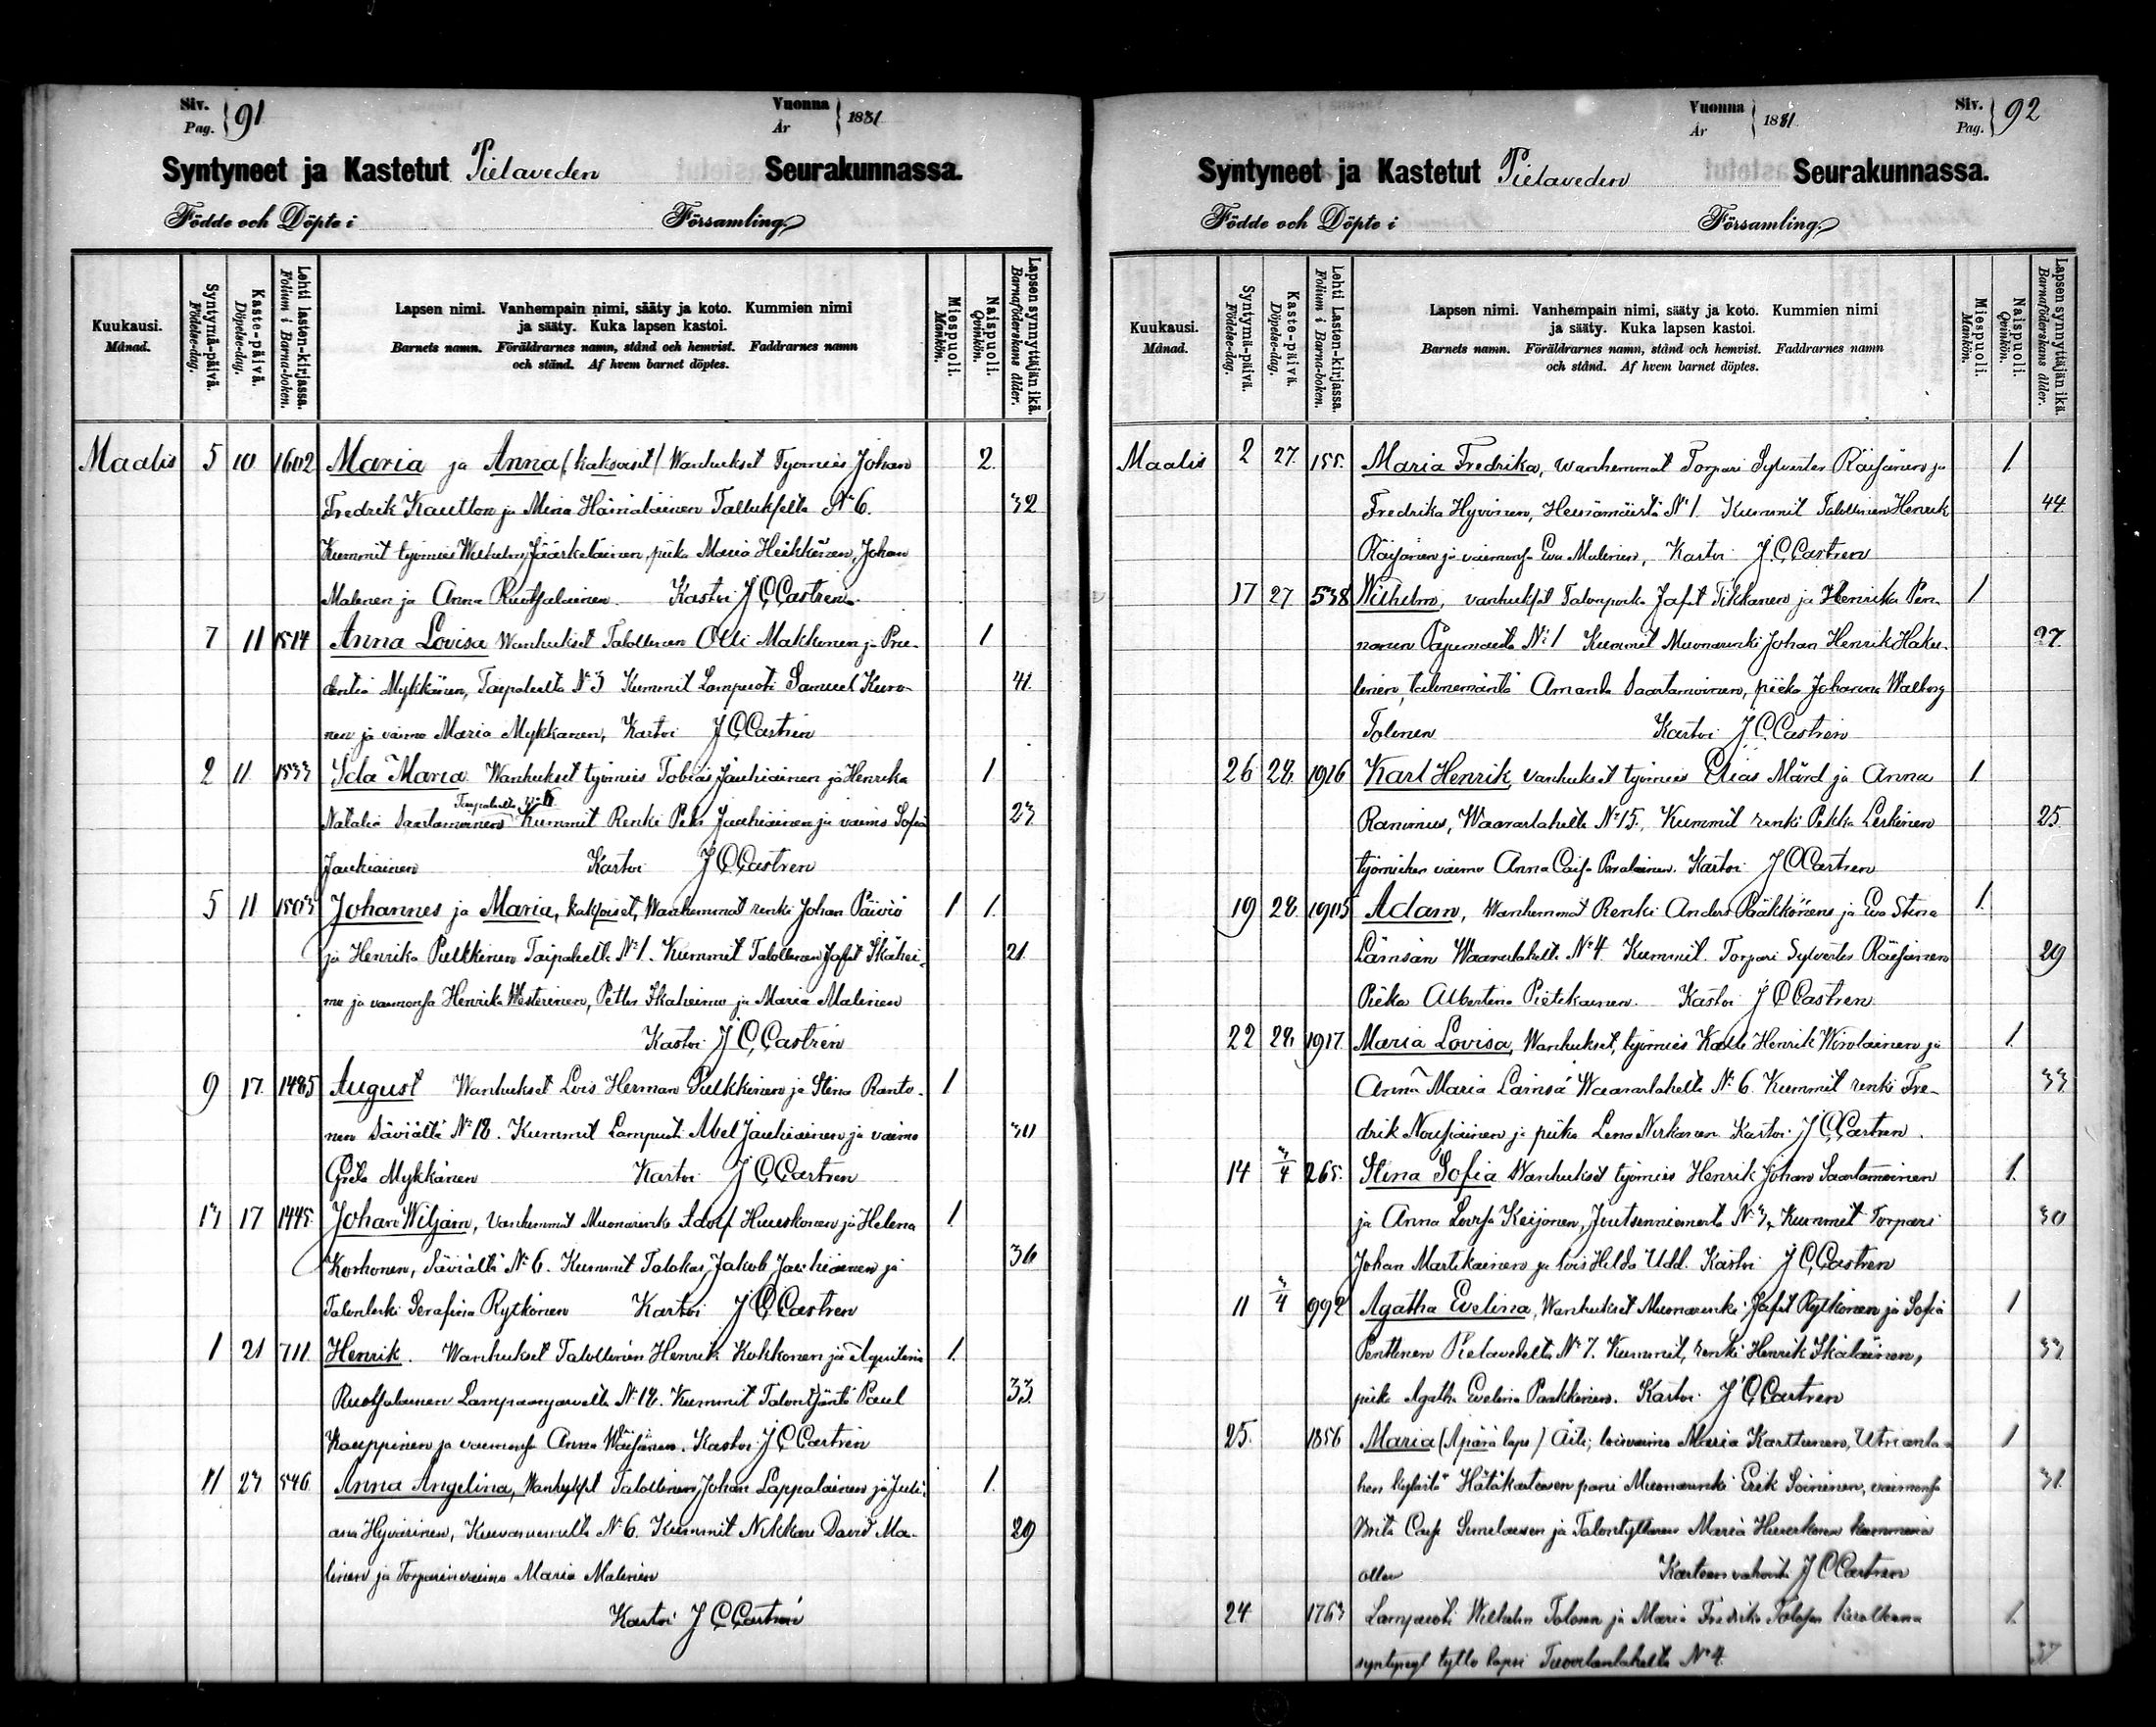 Siv. Pag. 91
Vuonna År 1881
Syntyneet ja Kastetut Pielaveden Seurakunnassa.
Födde och Döpte i Församling.
Kuukausi. Månad.
Syntymä-päivä. Födelse-dag.
Kaste-päivä. Döpelse-dag.
Lehti lasten-kirjassa. Folium i Barna-boken.
Lapsen nimi. Vanhempain nimi, sääty ja koto. Kummien nimi
ja sääty. Kuka lapsen kastoi.
Barnets namn. Föräldrarnes namn, stånd och hemvist. Faddrarnes namn
och stånd. Af hvem barnet döptes.
Miespuoli. Mankön.
Naispuoli. Qvinkön.
Lapsen synnyttäjän ikä. Barnaföderskans ålder.
Maalis 5 10 1602 Maria ja Anna (kaksoiset) Wanhukset Työmies Johan 2.
Fredrik Kautton ja Mina Hämäläinen N:o 6. 32
Kummit työmies Wilhelm Jääskeläinen, piika Maria Heikkinen, Johan
Malinen ja Anna Ruotsalainen. Kastoi J C Castrén.
7 11 1514 Anna Lovisa Wanhukset Talollinen Olli Makkonen ja Pru- 1
dentia Mykkänen, Taipaleelta N:o 3 Kummit Lampuoti Samuel Kuro- 41.
nen ja vaimo Maria Mykkanen, Kastoi J C Castrén
2 11 1533 Ida Maria Wanhukset työmies Tobias Jauhiainen ja Henrika 1
Taipaleelta N:o 6
Natalia Saastamoinen Kummit Renki Pekka Jauhiainen ja vaimo Sofia 23
Jauhiainen Kastoi J C Castren
5 11 1503 Johannes ja Maria, kaksoiset, Wanhemmat renki Johan Päiviö 1 1.
ja Henrika Pulkkinen Taipaleelta N:o 1. Kummit Talollinen Jafet Ikähei- 21.
mo ja vaimonsa Henrika Westerinen, Petter Ikaheimo ja Maria Malinen
Kastoi J C Castrén
9 17 1485 August Wanhukset Lois Herman Pulkkinen ja Stina Ranta- 1
nen Säviältä N:o 18. Kummit Lampuoti Abel Jauhiainen ja vaimo 30
Greta Mykkänen Kastoi J C Castren
13 17 1445. Johan Wiljam, Vanhemmat Muonarenki Adolf Huuskonen ja Helena 1.
Korhonen, Säviältä N:o 6. Kummit Talokas Jakob Jauhiainen ja 36
Serafina Rytkönen Kastoi J C Castren
1 21 711. Henrik. Wanhukset Talollinen Henrik Kokkonen ja Aqvilina 1.
Ruotsalainen Lampaanjarvelta N:o 18. Kummit Talonisäntä Paul 33
Kauppinen ja vaimonsa Anna Wäisänen. Kastoi J C Castrén
11 23 546 Anna Angelina, Wanhukset Talollinen Johan Lappalainen ja Juli- 1.
ana Hyvärinen, N:o 6. Kummit Nikkari David Ma- 29
linen ja Torparinvaimo Maria Malinen
Kastoi J C Castrén
Vuonna År 1881.
Siv. Pag. 92
Syntyneet ja Kastetut Pielaveden Seurakunnassa.
Födde och Döpte i Församling.
Kuukausi. Månad.
Syntymä-päivä. Födelse-dag.
Kaste-päivä. Döpelse-dag.
Lehti Lasten-kirjassa. Folium i Barna-boken.
Lapsen nimi. Vanhempain nimi, sääty ja koto. Kummien nimi
ja sääty. Kuka lapsen kastoi.
Barnets namn. Föräldrarnes namn, stånd och hemvist. Faddrarnes namn
och stånd. Af hvem barnet döptes.
Miespuoli. Mankön.
Naispuoli. Qvinkön.
Lapsen synnyttäjän ikä. Barnaföderskans ålder.
Maalis 2 27. 155. Maria Fredrika, wanhemmat Torpari Sylvester Räisänen ja 1.
Fredrika Hyvönen, N:o 1. Kummit Talollinen Henrik 44
Räisänen ja vaimonsa Eva Malinen, Kastoi J C Castren
17 27 538 Wilhelm, vanhukset Talonpoika Jafet Tikkanen ja Henrika Pen- 1
nanen N:o 1 Kummit Muonarenki Johan Henrik Haku- 27.
linen, talonemäntä Amanda Saastamoinen, piika Johanna Walborg
Tolonen Kastoi J C Castren
26 28 1916 Karl Henrik, vanhukset työmies Elias Mård ja Anna 1.
Waaraslahelta N:o 15, Kummit renki Pekka Leskinen 25
työmiehen vaimo Anna Caisa Kastoi J C Castren
19 28. 1905 Adam, Wanhemmat Renki Anders Pääkkönen ja Eva Stina 1.
Lämsän Waaraslahelta N:o 4 Kummit. Torpari Sylvester Räisänen 29
Piika Albertina Pietikainen. Kastoi J C Castren
22 28, 1917. Maria Lovisa, Wanhukset, työmies Kalle Henrik Wirolainen ja 1.
Anna Maria Lämsä Waaraslahelta N:o 6. Kummit renki Fre- 33
drik Nousiainen ja piika Lena Niskanen Kastoi J C Castren.
14 3/4 265. Stina Sofia Wanhukset työmies Henrik Johan Saastamoinen 1.
ja Anna Lovisa Keijonen, Joutsenniemeltä N:o 3, Kummit Torpari 30
Johan Martikainen ja lois Hilda Udd. Kastoi J C Castren
11 3/4 992 Agatha Evelina, Wanhukset Muonarenki Jafet Rytkönen ja Sofia 1
Penttinen Pielavedelta N:o 7. Kummit, renki Henrik Ikäläinen, 33
piika Agatha Evelina Parkkinen. Kastoi J C Castren
25. 1856 Maria (Äpärä laps) Äiti; loisvaimo Maria Karttunen, 1
hen kylästä Hätäkasteesen pani Muonarenki Erik Soininen, vaimonsa 31.
Brita Caisa ja Talontyttären Maria kummina
ollen Kasteen vahvisti J C Castren
24 1763 Lampuoti Wilhelm Tolonen ja Maria Fredrika kuolleena 1.
syntynyt tyttö lapsi N:o 4.